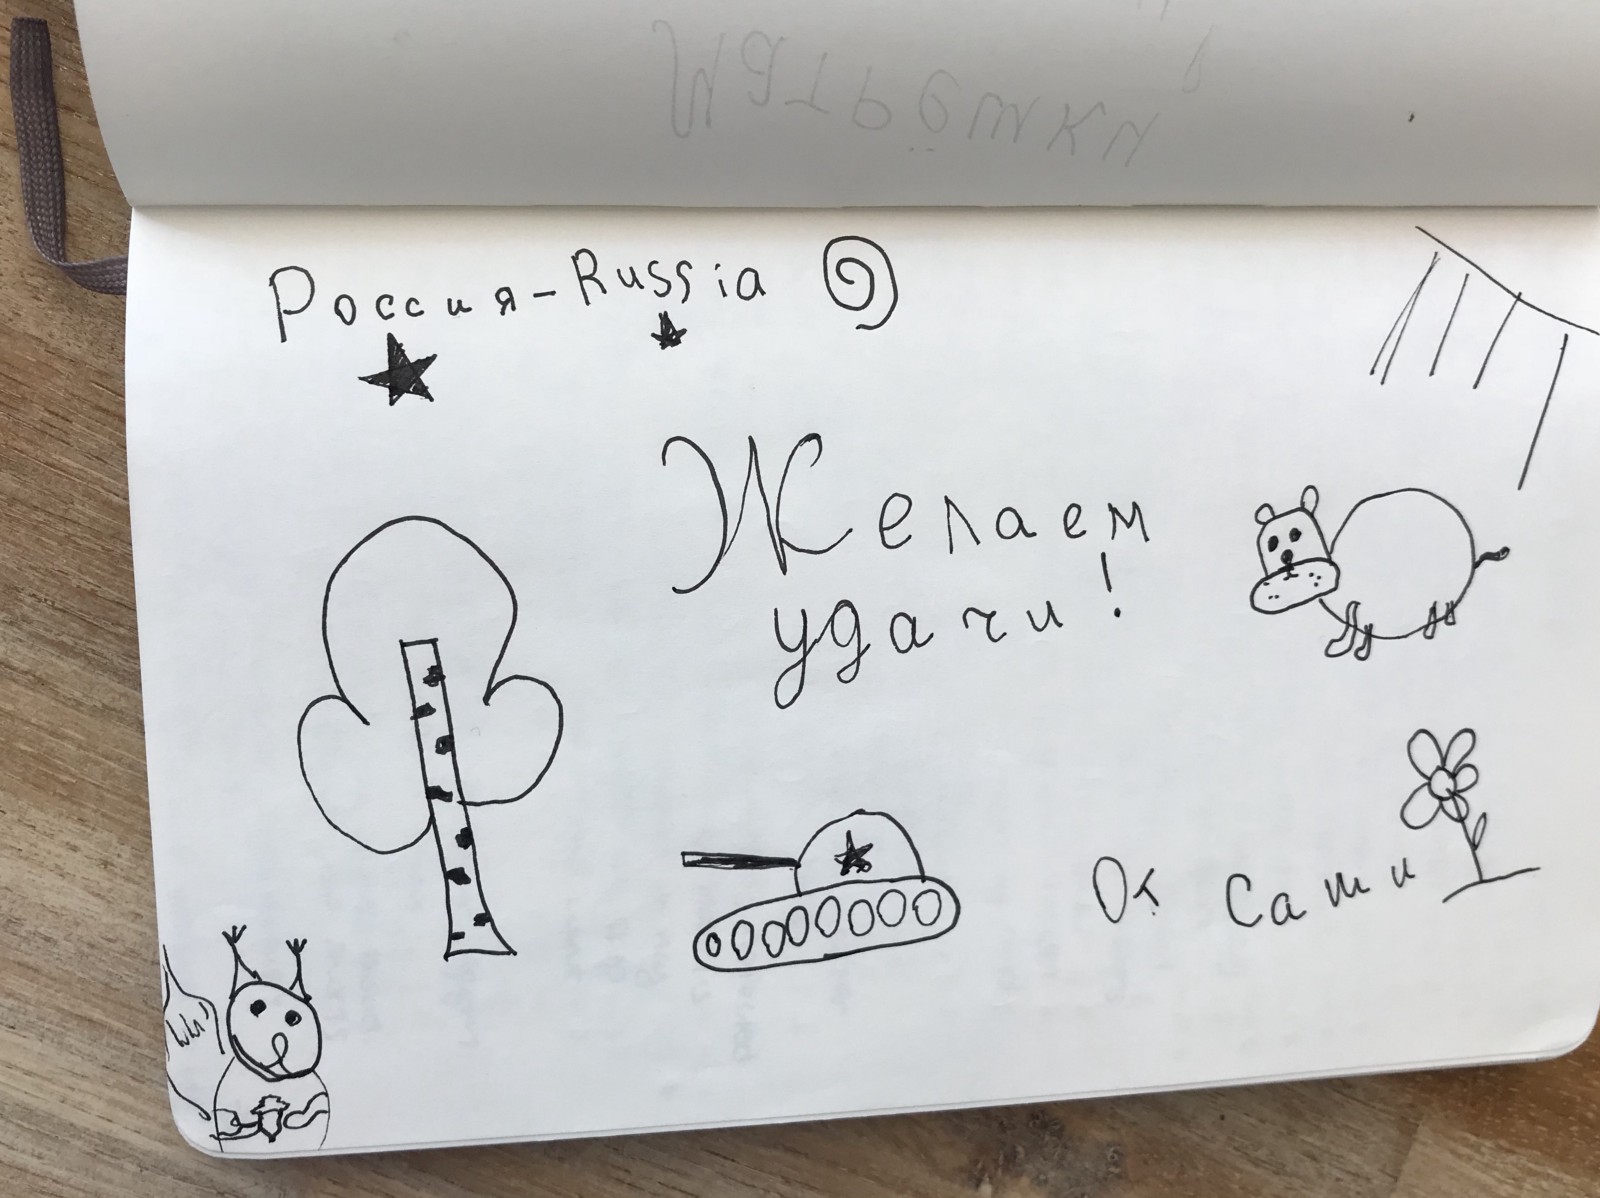 Матрёшки
Россия-Russia
Желаем
удачи!
От Саши